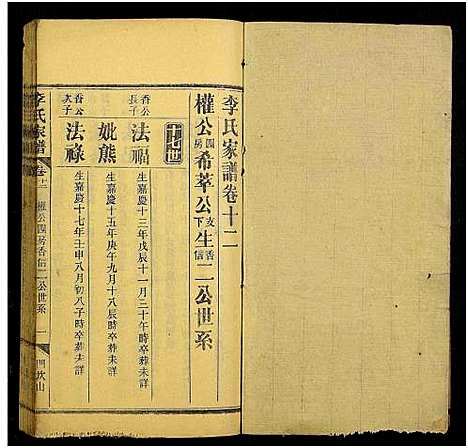 李氏家譜卷十二
權公四房希萃公支下生香信二公世系
十七世
香公長子
法福
生嘉慶十三年戊辰十一月三十午時卒葬未詳
妣熊
生嘉慶十五年庚午九月十八辰時卒葬未詳
香公次子
法祿
生嘉慶十七年壬申八月初八子時卒葬未詳
李氏家譜
卷十二
權公四房香信二公世系
一